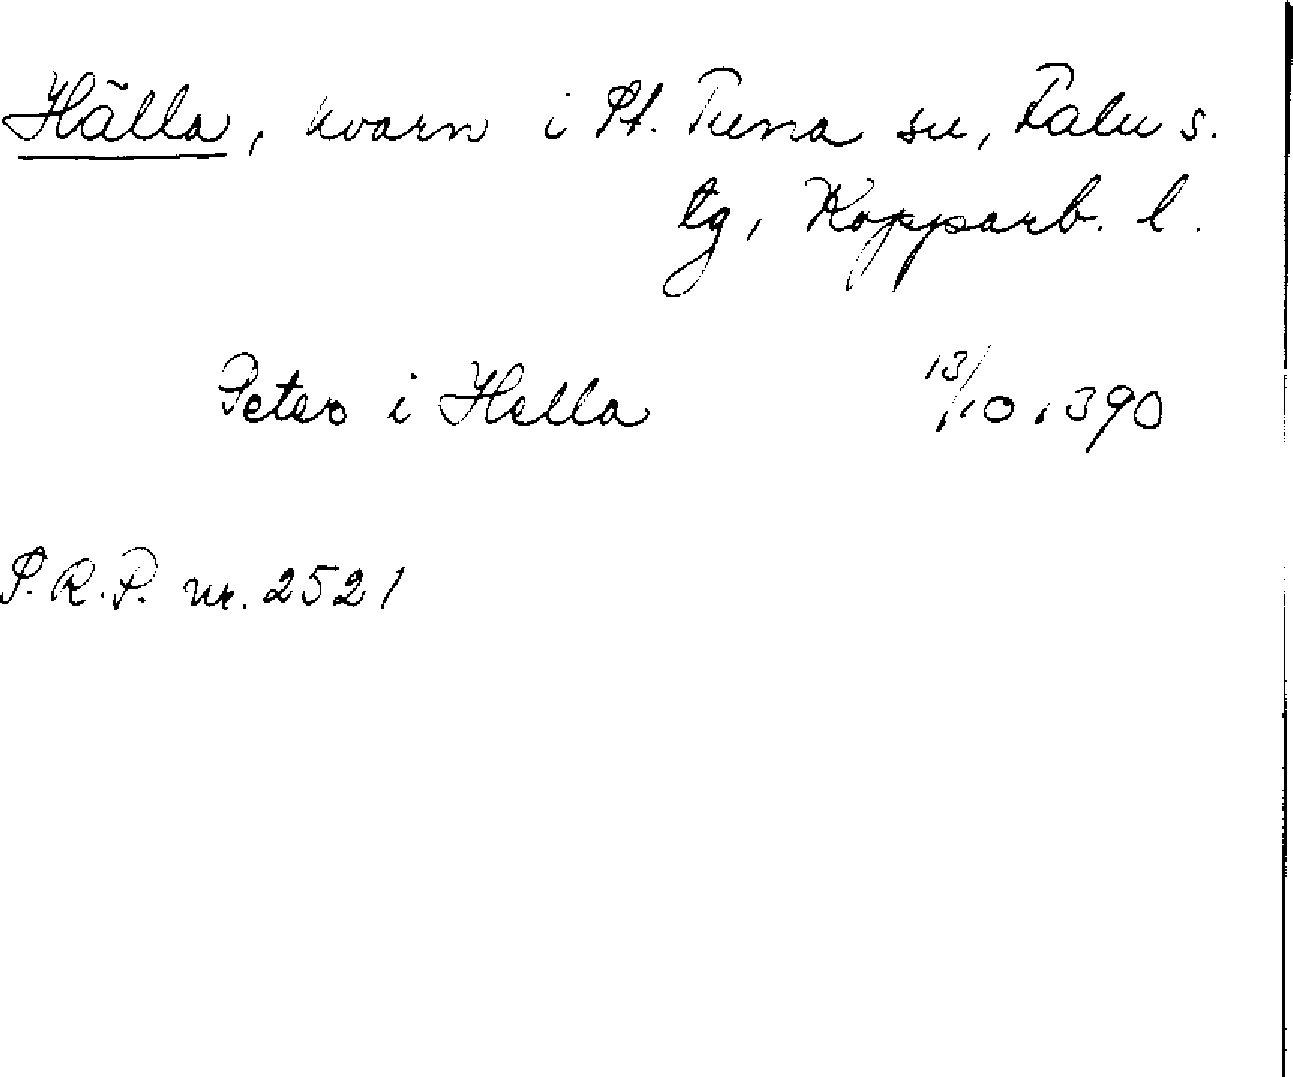 Hälla, kvarn i St. Tuna sn, Falu s.
tg, Kopparb. l.
Peter i Hella 13/10 1390
S.R.P. nr. 2521